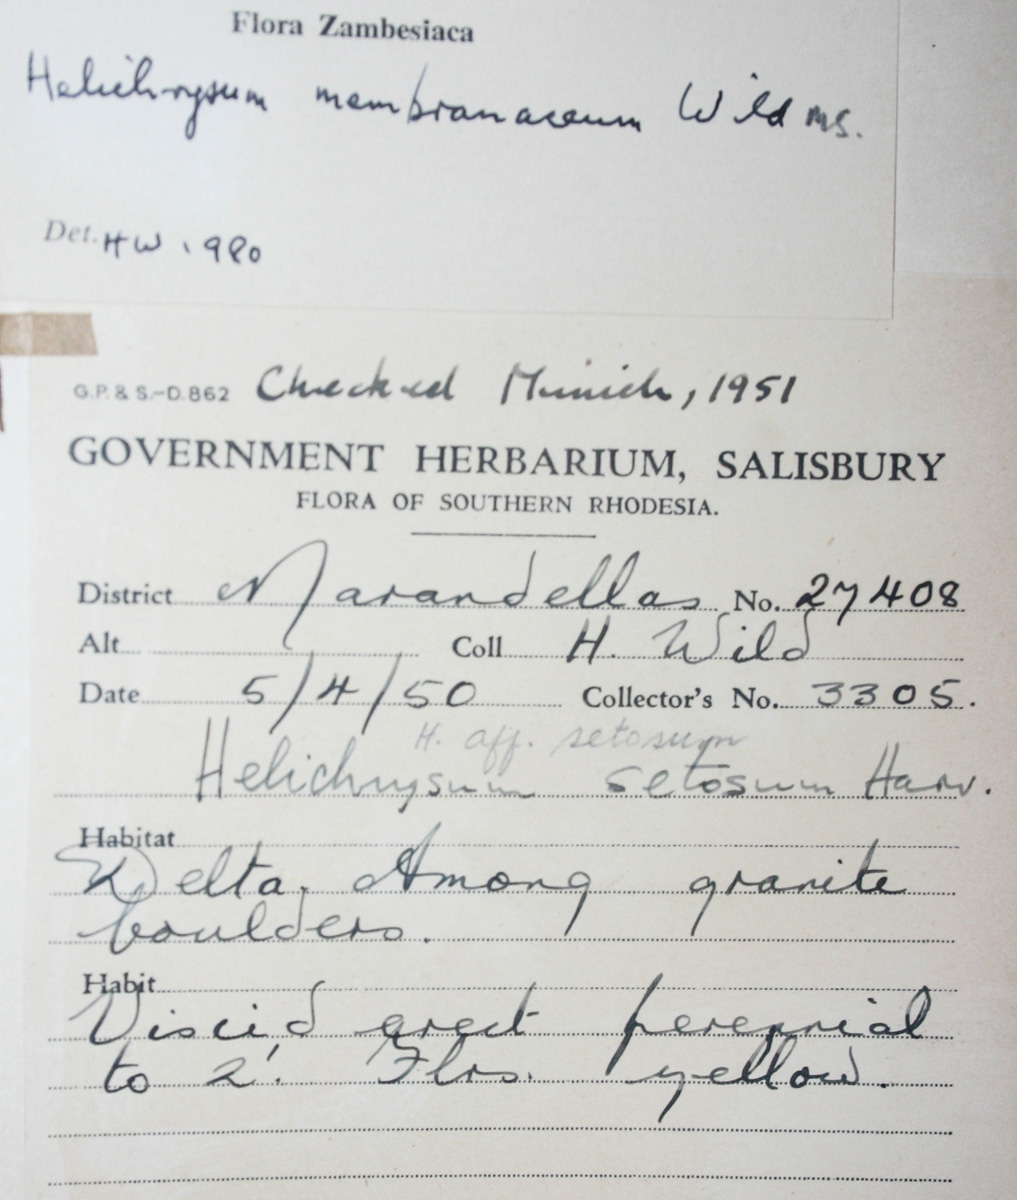 Flora Zambesiaca
Helichrysum membranaceum Wild ms.
Det. HW 1980
G.P. & S.-D.862 Checked Munich, 1951
GOVERNMENT HERBARIUM, SALISBURY
FLORA OF SOUTHERN RHODESIA.
District Marandellas No. 27408
Alt. Coll H. Wild
Date 5/4/50 Collector's No. 3305.
H. aff. setosum
Helichrysum setosum Harv.
Habitat
Delta. Among granite
boulders.
Habit
Viscid erect perennial
to 2'. Flrs. yellow.